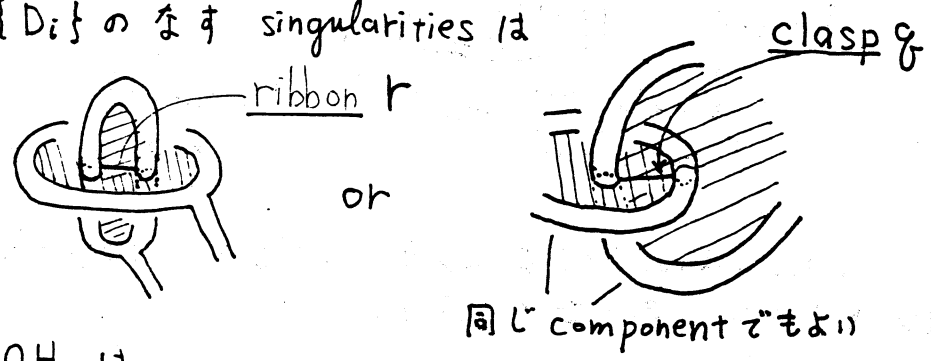 {Di} の なす singularities は
clasp q
ribbon r
or
同じ component でもよい
は